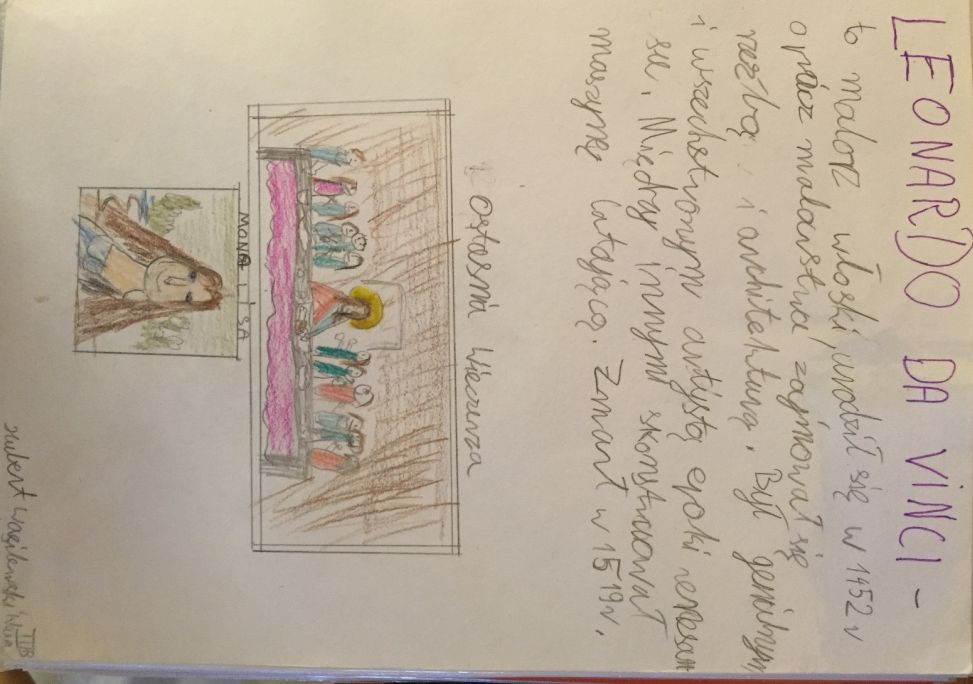 LEONARDO DA VINCI -
to malarz włoski, urodził się w 1452 r
oprócz malarstwa zajmował się
rzeźbą i architekturą. Był genialnym
i wszechstronnym artystą epoki renesan
su. Między innymi skonstruował
maszynę latającą. Zmarł w 1519 r.
Ostatnia Wieczerza
MONA LISA
Hubert
III B